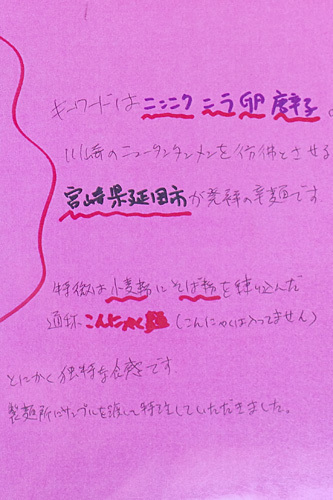 キーワードはニンニク ニラ 卵 唐辛子。
川崎のニュータンタンメンを彷彿とさせる
宮崎県延岡市が発祥の辛麺です
特徴は小麦粉にそば粉を練り込んだ
通称こんにゃく麺(こんにゃくは入ってません)
とにかく独特な食感です
製麺所にサンプルを渡して特注していただきました。